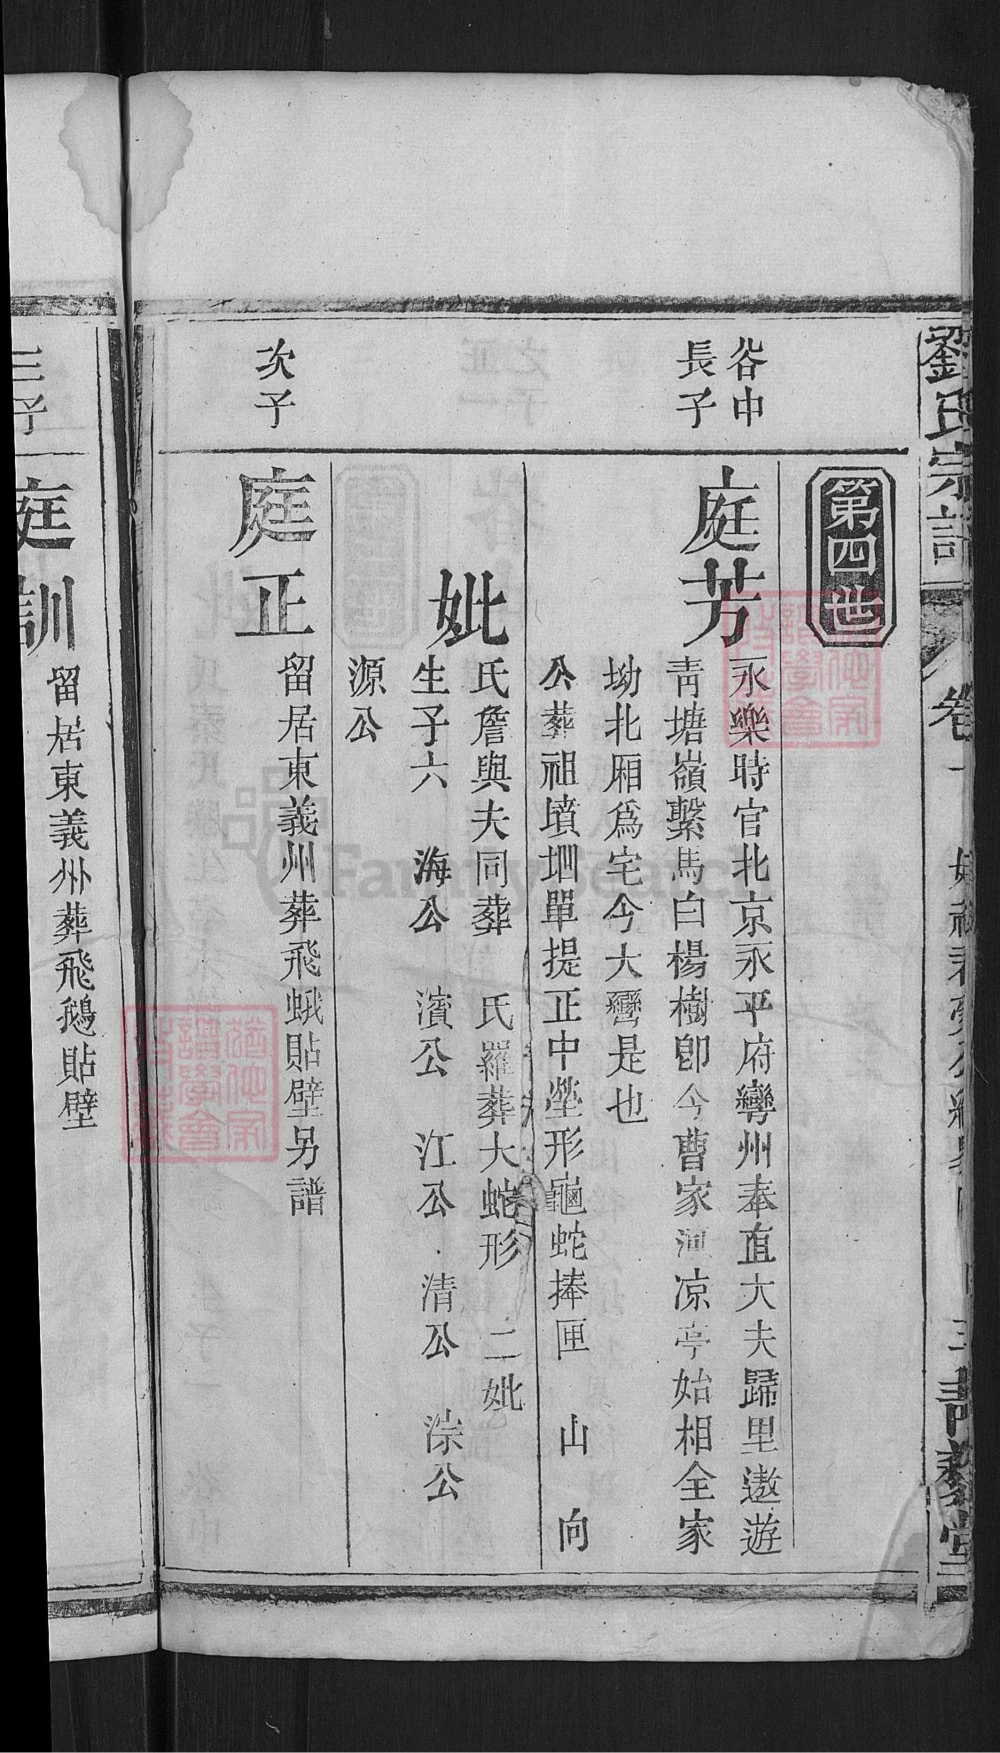 劉氏宗譜
卷一
三
青藜堂
第四世
谷中
長子
庭芳
永樂時官北京永平府灣州奉直大夫歸里遨遊
青塘嶺繫馬白楊樹卽今曹家河凉亭始相全家
坳北厢爲宅今大灣是也
公葬祖墳垇單提正中塋形龜蛇捧匣　山　向
妣
氏詹與夫同葬　氏羅葬大蛇形　二妣
生子六　海公　濱公　江公　清公　淙公
源公
次子
庭正
留居東義州葬飛蛾貼壁另譜
三子
庭訓
留居東義州葬飛鵝貼壁
FamilySearch